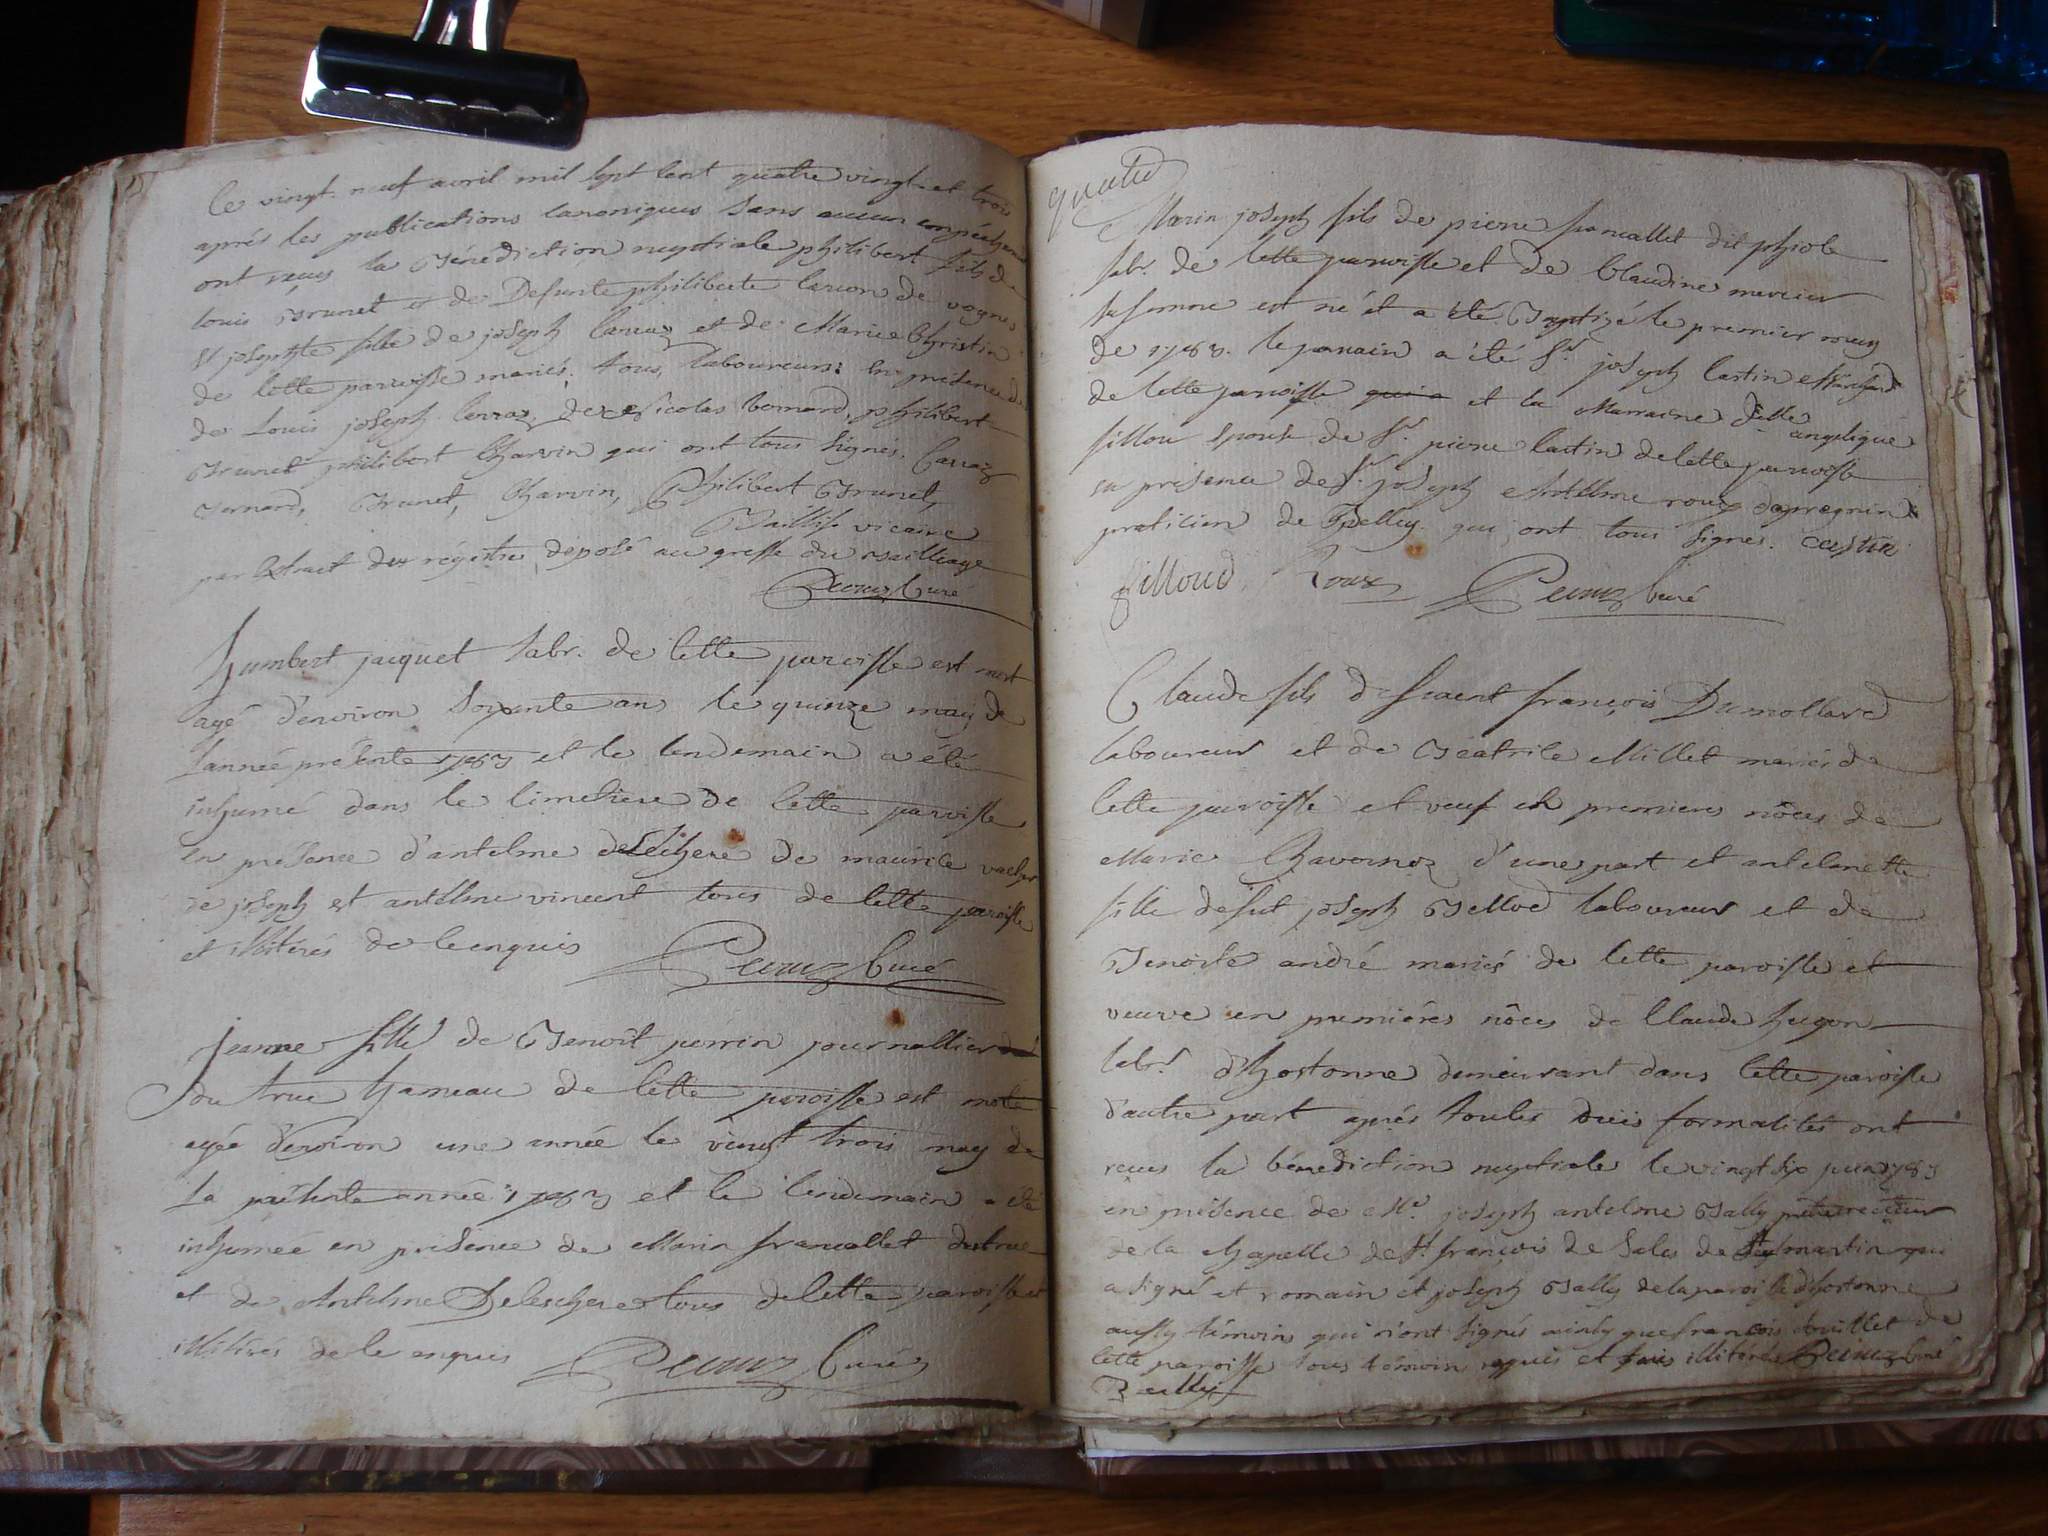 le vingt neuf avril mil sept cent quatre vingt et trois
aprés les publications canoniques sans aucun empéchement
ont reçus la Bénédiction nuptiale philibert fils de
louis Brunet et de Defunte philiberte de vognes
et josephte fille de joseph carraz et de Marie Christin
de cette paroisse mariés, tous laboureurs: en présence de
de Louis joseph carraz, de Nicolas bernard, philibert
Brunet philibert Charvin qui ont tous signés. Carraz
Bernard, Brunet, Charvin, Philibert Brunet,
vicaire
par Extrait du régistre déposé au greffe du Bailliage
curé
humbert jacquet labr. de cette paroisse est mort
agé d'environ soixante ans le quinze may de
l'année présente 1783 et le lendemain a été
inhumé dans le cimetiere de cette paroisse
en présence d'antelme delechere de maurice vacher
de joseph et antelme vincent tous de cette paroisse
et illitérés de ce enquis
curé
jeanne fille de Benoit perrin journallier
du truc hameau de cette paroisse est morte
agée d'environ une année le vingt trois may de
la présente année 1783 et le lendemain a été
inhumée en présence de Marin francallet du truc
et de Antelme Delechere tous de cette paroisse et
illitérés de ce enquis
curé
Marin joseph fils de pierre francallet dit phiole
labr. de cette paroisse et de Claudine mercier
sa femme est né et a été Baptizé le premier may
de 1783. le parrain a été Sr. joseph castin
de cette paroisse et la Marraine Delle angelique
fillou épouse de Sr. pierre castin de cette paroisse
en présence de Sr. joseph Antelme roux
praticien de Belley qui ont tous signés. castin
filloud Roux curé
Claude fils d françois Dumollard
laboureur et de Béatrice Millet mariés de
cette paroisse et veuf en premieres nôces de
Marie Chavornoz d'une part et antelmette
fille de fut joseph Belliod laboureur et de
Benoite andré mariés de cette paroisse et
veuve en premiéres nôces de Claude hugon
labr. d'hostonne demeurant dans cette paroisse
d'autre part aprés toutes formalités ont
reçus la bénédiction nuptiale le vingt six juin 1783
en présence de Mre. joseph antelme Bally prêtre recteur
de la chapelle de St. françois de Sales de St. martin qui
a signé et romain et joseph Bally de la paroisse d'hostonne
aussy témoins qui n'ont signés ainsy que françois douillet de
cette paroisse tous témoin requis et illitérés curé
Bally